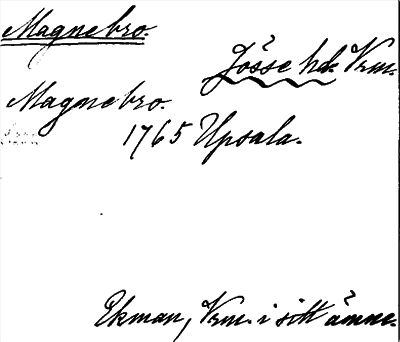 Magnebro.
Jösse hd. Vrm.
Magnebro.
1765 Upsala.
Ekman, Vrm. i sitt ämne.